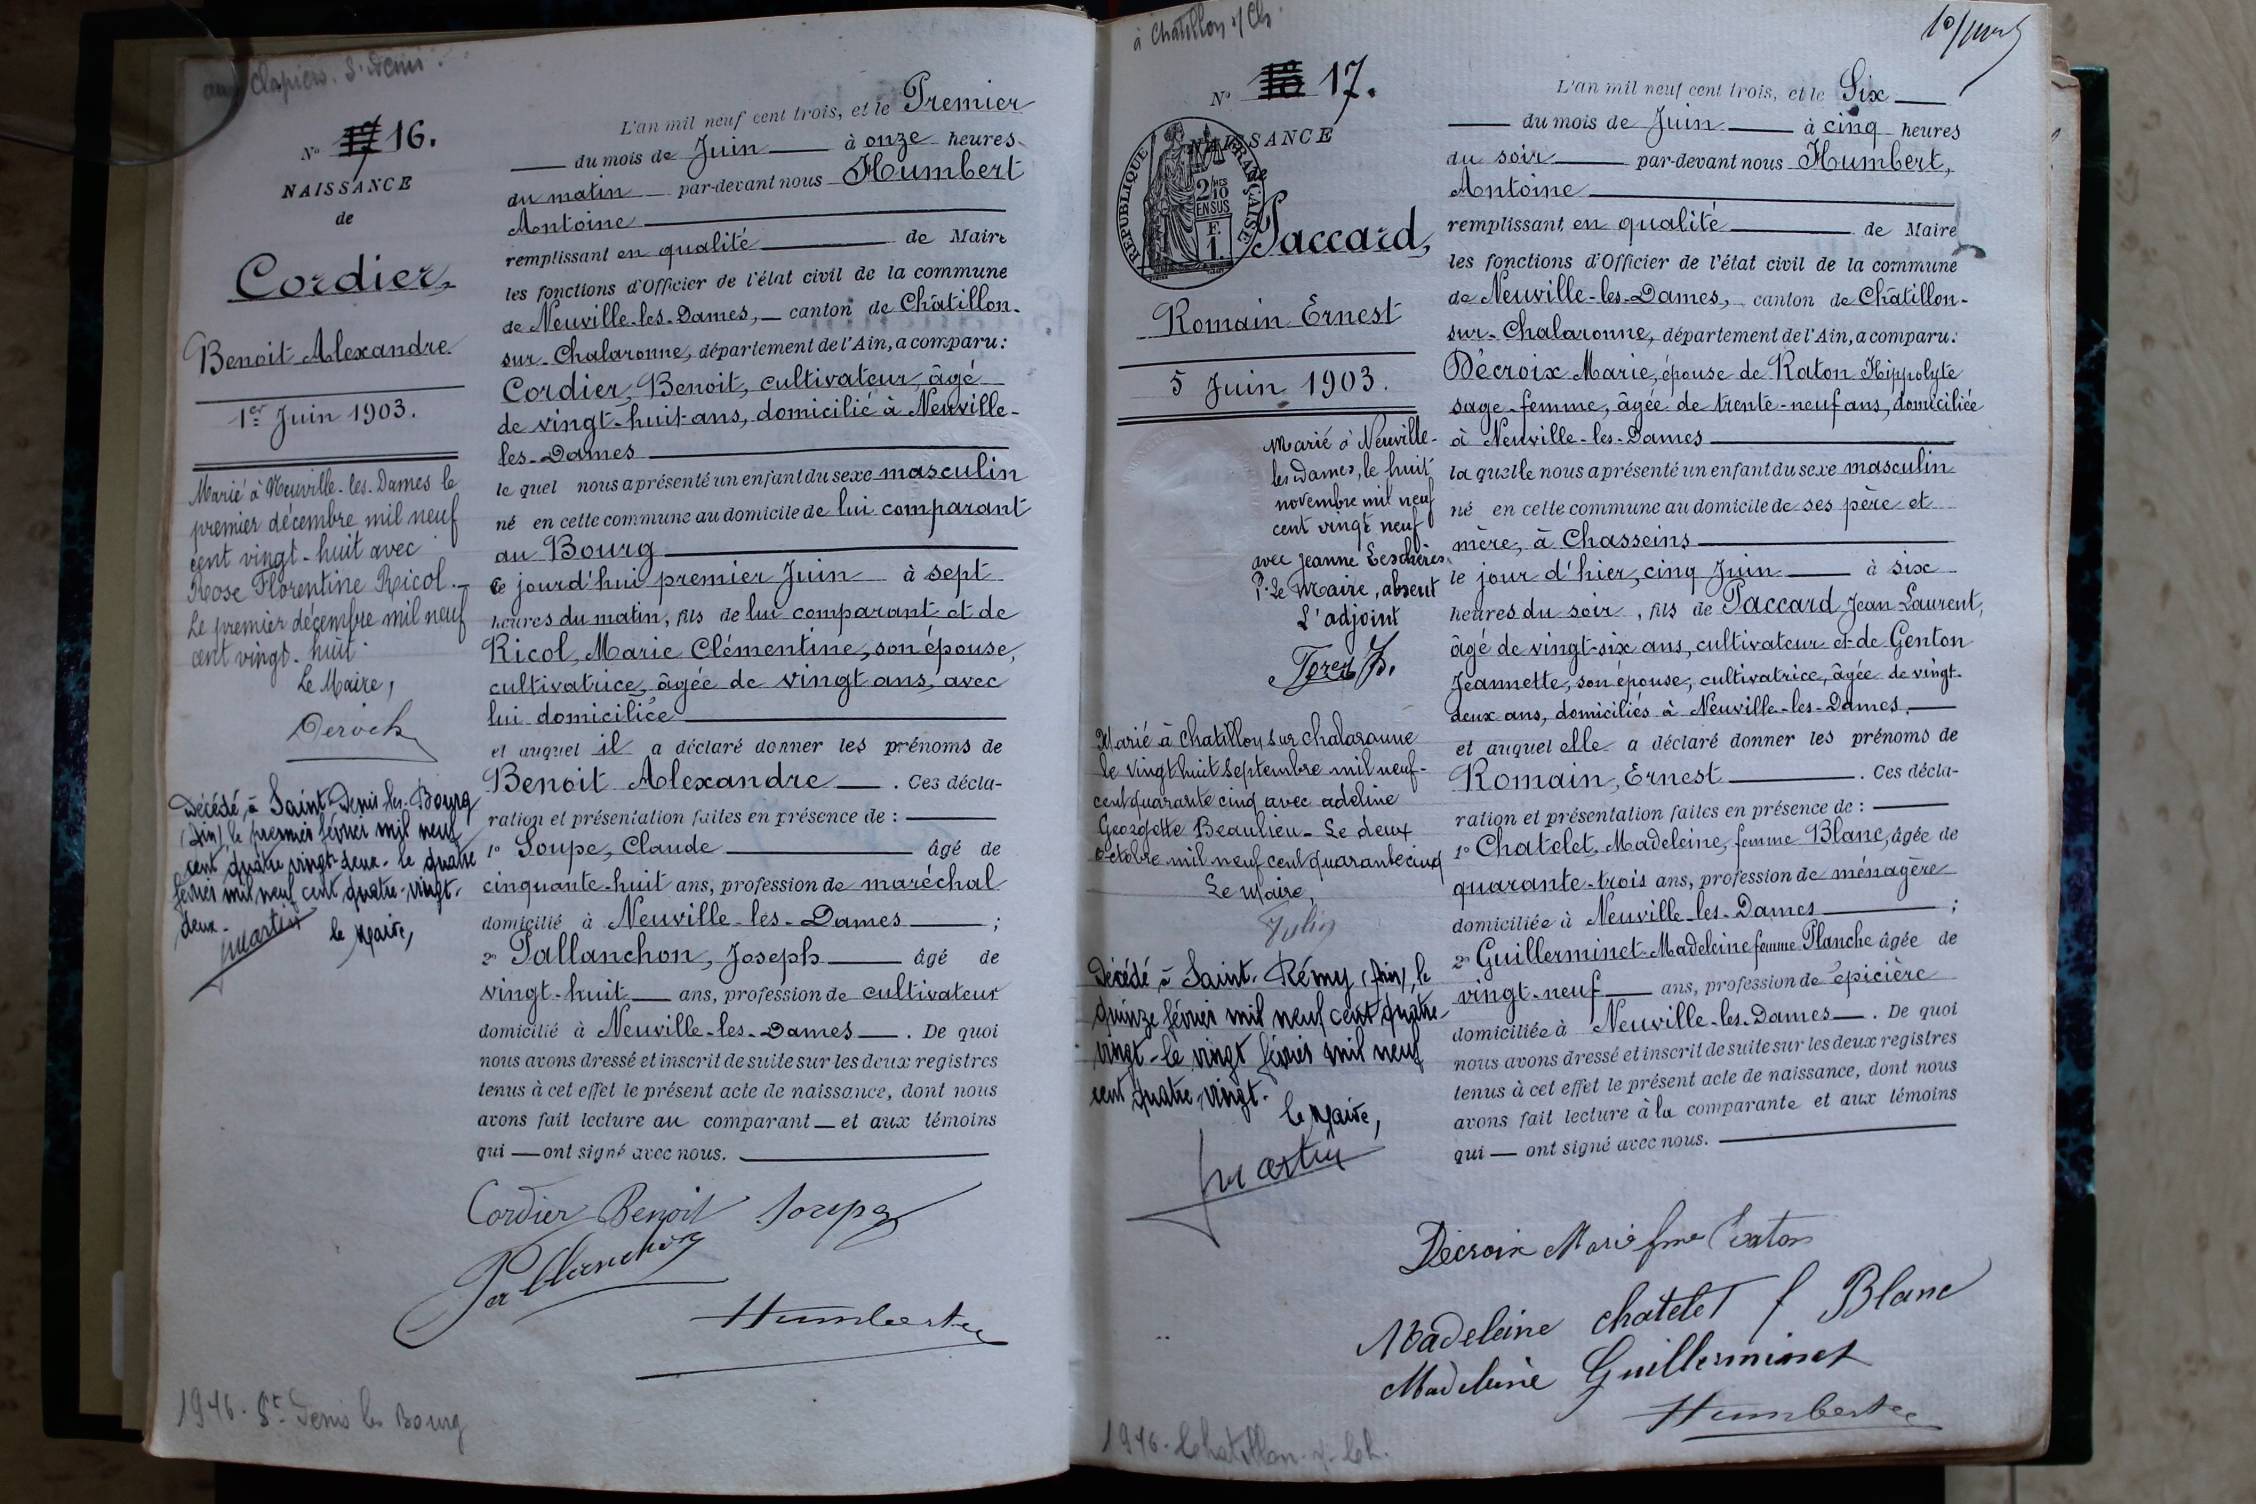 aux Clapiers. St Denis.
N° 17 16.
NAISSANCE
de
Cordier,
Benoit Alexandre
1er Juin 1903.
Marié à Neuville-les-Dames le
premier décembre mil neuf
cent vingt-huit avec
Rose Florentine Ricol.-
Le premier décembre mil neuf
cent vingt-huit.
Le Maire,
Décédé à Saint-Denis-les-Bourg
(Ain) le premier février mil neuf
cent quatre vingt-deux. le quatre
février mil neuf cent quatre-vingt-
deux.
le Maire,
Martin
1946. St Denis les Bourg
L'an mil neuf cent trois, et le Premier
du mois de Juin à onze heures
du matin par-devant nous Humbert
Antoine
remplissant en qualité de Maire
les fonctions d'Officier de l'état civil de la commune
de Neuville-les-Dames, canton de Châtillon-
sur-Chalaronne, département de l'Ain, a comparu:
Cordier, Benoit, cultivateur, âgé
de vingt-huit ans, domicilié à Neuville-
les-Dames
le quel nous a présenté un enfant du sexe masculin
né en cette commune au domicile de lui comparant
au Bourg
ce jourd'hui premier Juin à sept
heures du matin, fils de lui comparant et de
Ricol, Marie Clémentine, son épouse,
cultivatrice, âgée de vingt ans, avec
lui domiciliée
et auquel il a déclaré donner les prénoms de
Benoit Alexandre. Ces décla-
ration et présentation faites en présence de :
1° Soupe, Claude âgé de
cinquante-huit ans, profession de maréchal
domicilié à Neuville-les-Dames ;
2° Pallanchon, Joseph âgé de
vingt-huit ans, profession de cultivateur
domicilié à Neuville-les-Dames. De quoi
nous avons dressé et inscrit de suite sur les deux registres
tenus à cet effet le présent acte de naissance, dont nous
avons fait lecture au comparant et aux témoins
qui ont signé avec nous.
Cordier Benoit Soupe
Pallanchon
Humbert
à Chatillon s/ Ch.
N° 18 17.
NAISSANCE
de
REPUBLIQUE FRANÇAISE
2/10 EN SUS
F. 1.
Paccard,
Romain Ernest
5 Juin 1903.
Marié à Neuville-
les Dames, le huit
novembre mil neuf
cent vingt neuf
avec Jeanne Leschères
P. Le Maire, absent
L'adjoint
Marié à Chatillon sur Chalaronne
le vingt huit septembre mil neuf-
cent quarante cinq avec adeline
Georgette Beaulieu. Le deux
octobre mil neuf cent quarante cinq
Le Maire,
Décédé à Saint-Rémy (Ain), le
quinze février mil neuf cent quatre-
vingt - le vingt février mil neuf
cent quatre-vingt.
le Maire,
Martin
1946. Chatillon s. Ch.
L'an mil neuf cent trois, et le Six
du mois de Juin à cinq heures
du soir par-devant nous Humbert,
Antoine
remplissant en qualité de Maire
les fonctions d'Officier de l'état civil de la commune
de Neuville-les-Dames, canton de Châtillon-
sur-Chalaronne, département de l'Ain, a comparu:
Décroix Marie, épouse de Raton Hippolyte
sage-femme, âgée de trente-neuf ans, domiciliée
à Neuville-les-Dames
la quelle nous a présenté un enfant du sexe masculin
né en cette commune au domicile de ses père et
mère, à Chasseins
le jour d'hier, cinq Juin à six
heures du soir, fils de Paccard Jean Laurent,
âgé de vingt-six ans, cultivateur et de Genton
Jeannette, son épouse, cultivatrice, âgée de vingt-
deux ans, domiciliés à Neuville-les-Dames.
et auquel elle a déclaré donner les prénoms de
Romain, Ernest. Ces décla-
ration et présentation faites en présence de :
1° Chatelet, Madeleine, femme Blanc, âgée de
quarante-trois ans, profession de ménagère
domiciliée à Neuville-les-Dames ;
2° Guillerminet Madeleine femme Planche âgée de
vingt-neuf ans, profession de épicière
domiciliée à Neuville-les-Dames. De quoi
nous avons dressé et inscrit de suite sur les deux registres
tenus à cet effet le présent acte de naissance, dont nous
avons fait lecture à la comparante et aux témoins
qui ont signé avec nous.
Décroix Marie fme Raton
Madeleine chatelet f Blanc
Madeleine Guillerminet
Humbert